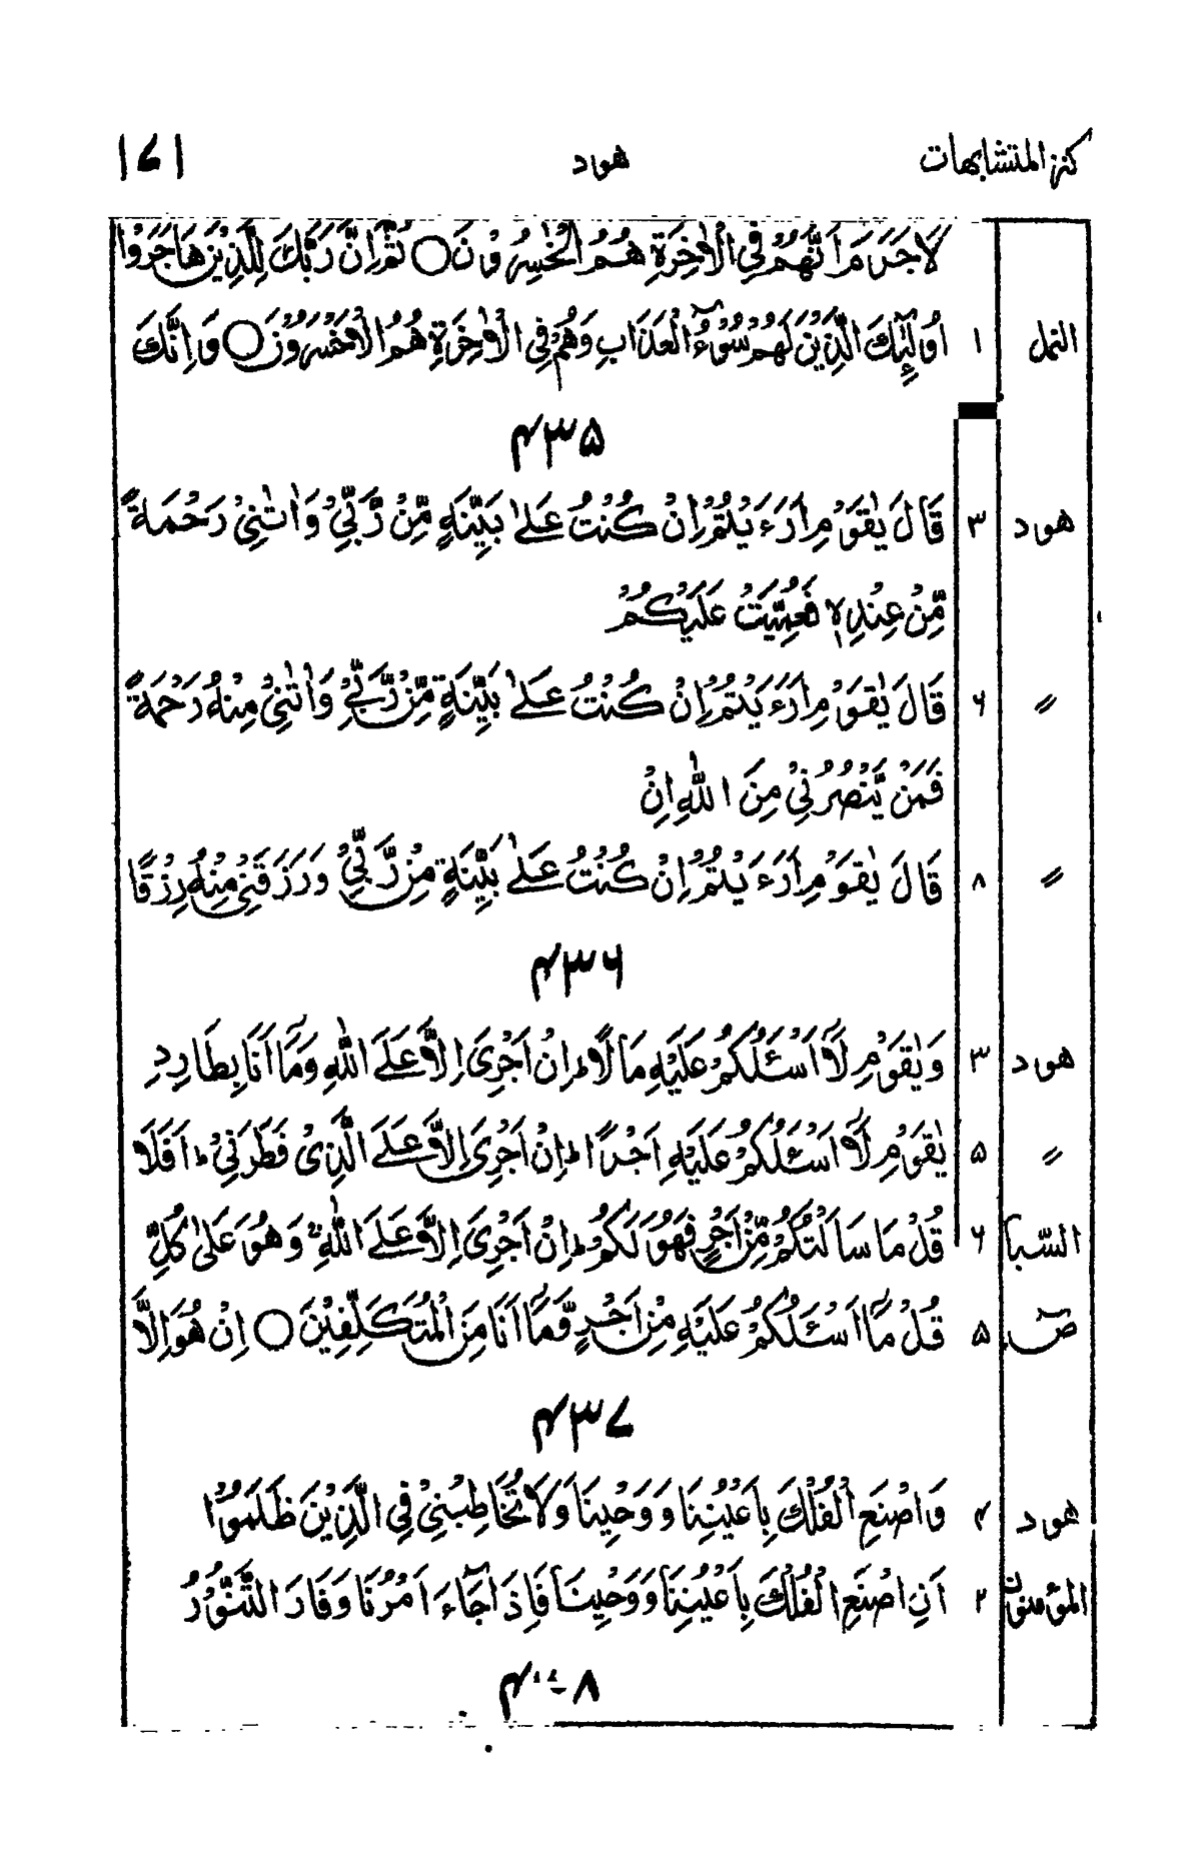 كنز المتشابهات هود ۱۷۱
لَا جَرَمَ اَنَّهُمْ فِي الْاٰخِرَةِ هُمُ الْخٰسِرُوْنَ ○ ثُمَّ اِنَّ رَبَّكَ لِلَّذِيْنَ هَاجَرُوْا
النمل ۱ اُولٰٓئِكَ الَّذِيْنَ لَهُمْ سُوْٓءُ الْعَذَابِ وَهُمْ فِي الْاٰخِرَةِ هُمُ الْاَخْسَرُوْنَ ○ وَاِنَّكَ
۴۳۵
هود ۳ قَالَ يٰقَوْمِ اَرَءَيْتُمْ اِنْ كُنْتُ عَلٰى بَيِّنَةٍ مِّنْ رَّبِّيْ وَاٰتٰىنِيْ رَحْمَةً
مِّنْ عِنْدِهٖ فَعُمِّيَتْ عَلَيْكُمْ
〃 ۶ قَالَ يٰقَوْمِ اَرَءَيْتُمْ اِنْ كُنْتُ عَلٰى بَيِّنَةٍ مِّنْ رَّبِّيْ وَاٰتٰىنِيْ مِنْهُ رَحْمَةً
فَمَنْ يَّنْصُرُنِيْ مِنَ اللّٰهِ اِنْ
〃 ۸ قَالَ يٰقَوْمِ اَرَءَيْتُمْ اِنْ كُنْتُ عَلٰى بَيِّنَةٍ مِّنْ رَّبِّيْ وَرَزَقَنِيْ مِنْهُ رِزْقًا
۴۳۶
هود ۳ وَيٰقَوْمِ لَآ اَسْـَٔلُكُمْ عَلَيْهِ مَالًا ؕ اِنْ اَجْرِيَ اِلَّا عَلَى اللّٰهِ وَمَآ اَنَا بِطَارِدِ
〃 ۵ يٰقَوْمِ لَآ اَسْـَٔلُكُمْ عَلَيْهِ اَجْرًا ؕ اِنْ اَجْرِيَ اِلَّا عَلَى الَّذِيْ فَطَرَنِيْ ؕ اَفَلَا
السّبا ۶ قُلْ مَا سَاَلْتُكُمْ مِّنْ اَجْرٍ فَهُوَ لَكُمْ ؕ اِنْ اَجْرِيَ اِلَّا عَلَى اللّٰهِ ۚ وَهُوَ عَلٰى كُلِّ
صٓ ۵ قُلْ مَآ اَسْـَٔلُكُمْ عَلَيْهِ مِنْ اَجْرٍ وَّمَآ اَنَا مِنَ الْمُتَكَلِّفِيْنَ ○ اِنْ هُوَ اِلَّا
۴۳۷
هود ۴ وَاصْنَعِ الْفُلْكَ بِاَعْيُنِنَا وَوَحْيِنَا وَلَا تُخَاطِبْنِيْ فِي الَّذِيْنَ ظَلَمُوْا
المؤمنون ۲ اَنِ اصْنَعِ الْفُلْكَ بِاَعْيُنِنَا وَوَحْيِنَا فَاِذَا جَآءَ اَمْرُنَا وَفَارَ التَّنُّوْرُ